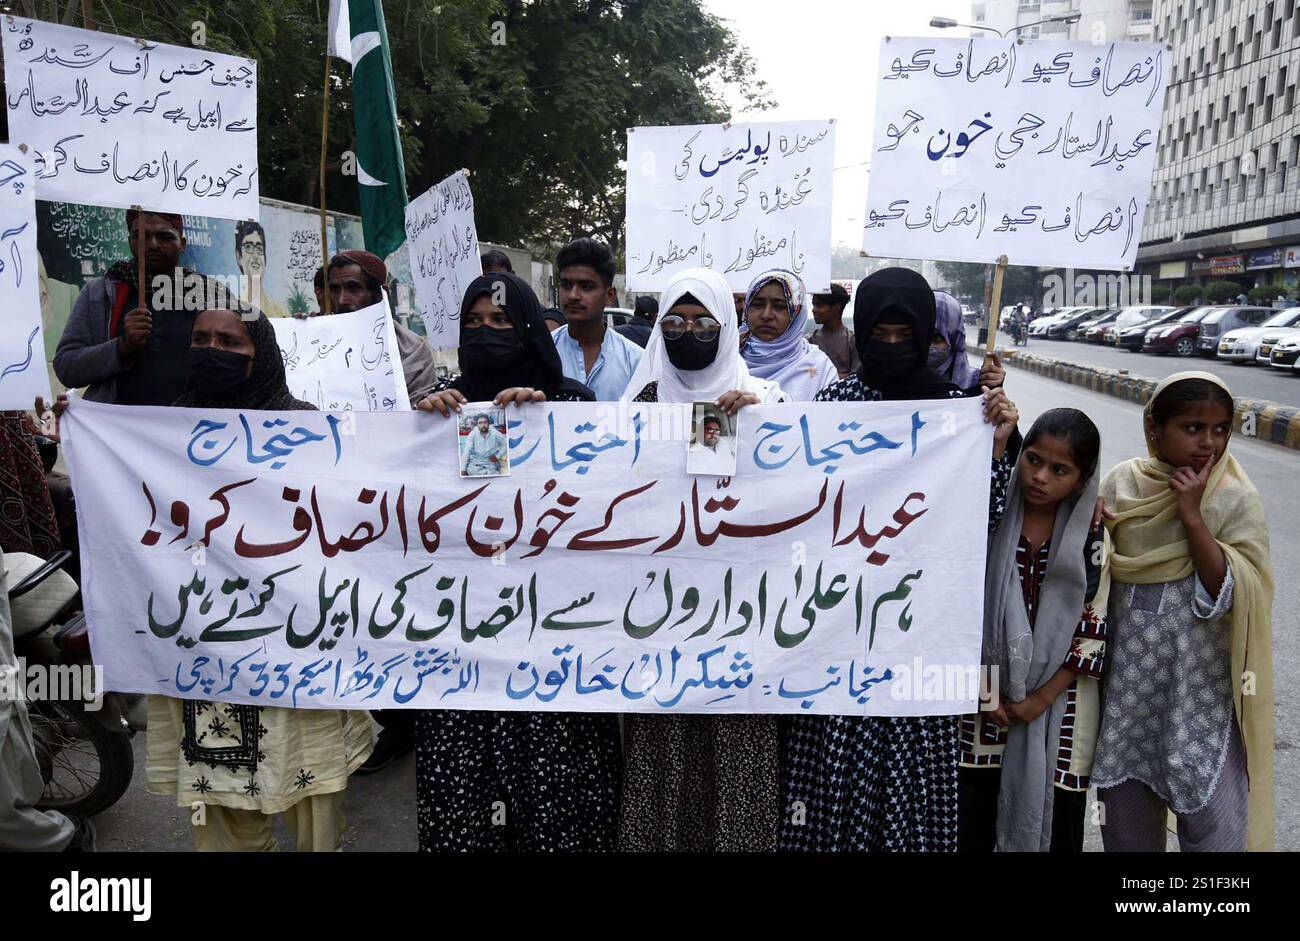 چیف جسٹس آف سندھ کورٹ
سے اپیل ہے کہ عبدالستار
کہ خون کا انصاف کرو
سنده پولیس کی
غُنڈہ گردی :-
نامنظور نامنظور :-
انصاف کيو انصاف کيو
عبدالستار جي خون جو
انصاف کيو انصاف کيو
احتجاج احتجاج احتجاج
عبدالستّار کے خُون کا انصاف کرو!
ہم اعلیٰ اداروں سے انصاف کی اپیل کرتے ہیں۔
منجانب ۔ شکراں خاتون اللہ بخش گوٹھ اسکیم 33 کراچی۔
BEEN
HMUD
alamy
Image ID: 2S1F3KH
www.alamy.com